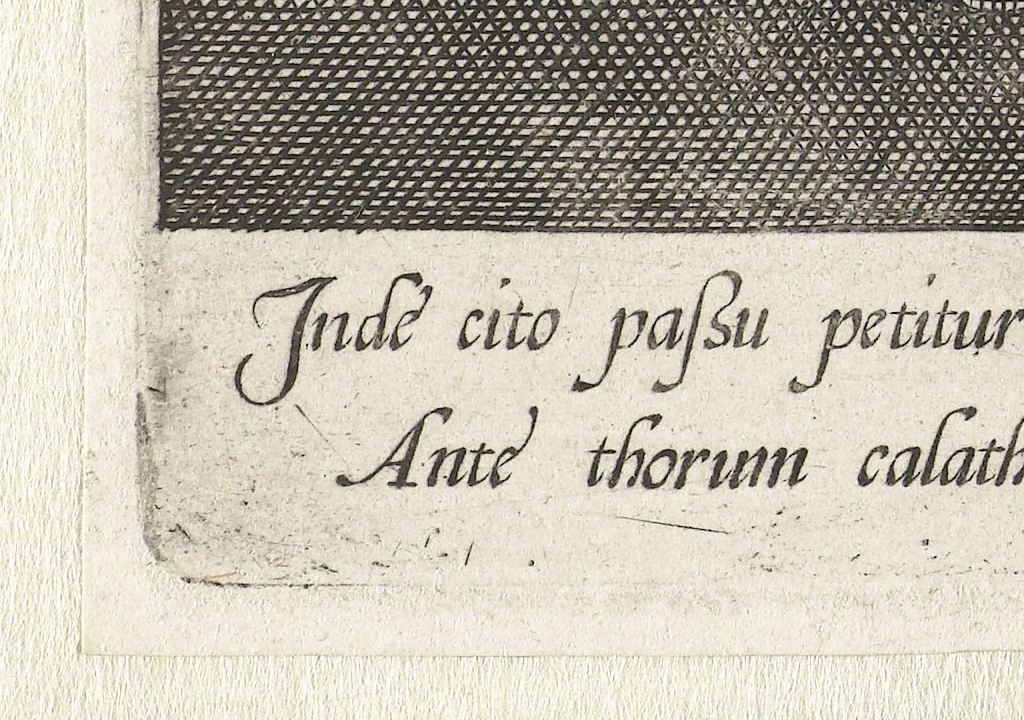 Inde cito paßu petitur
Ante thorum calath